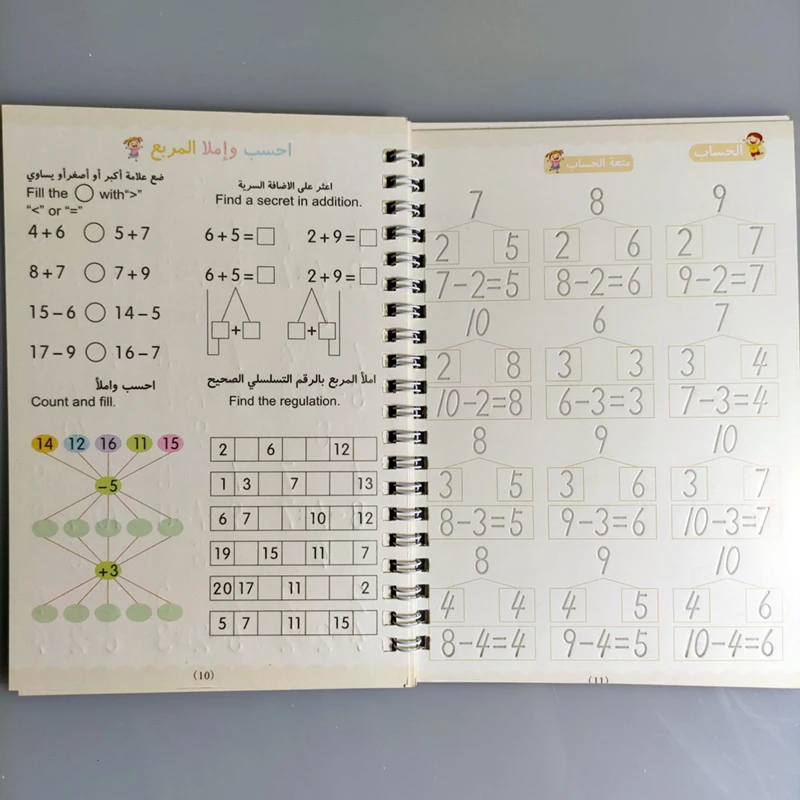 احسب وإملا المربع
ضع علامة أكبر أو أصغرأو يساوي
Fill the ◯ with“>”
“<” or “=”
4+6 ◯ 5+7
8+7 ◯ 7+9
15-6 ◯ 14-5
17-9 ◯ 16-7
اعثر على الاضافة السرية
Find a secret in addition.
6+5=□ 2+9=□
6+5=□ 2+9=□
□+□ □+□
احسب واملأ
Count and fill.
14 12 16 11 15
-5
+3
املأ المربع بالرقم التسلسلي الصحيح
Find the regulation.
2 6 12
1 3 7 13
6 7 10 12
19 15 11 7
20 17 11 2
5 7 11 15
(10)
الحساب
متعة الحساب
7 8 9
2 5 2 6 2 7
7-2=5 8-2=6 9-2=7
10 6 7
2 8 3 3 3 4
10-2=8 6-3=3 7-3=4
8 9 10
3 5 3 6 3 7
8-3=5 9-3=6 10-3=7
8 9 10
4 4 4 5 4 6
8-4=4 9-4=5 10-4=6
(11)